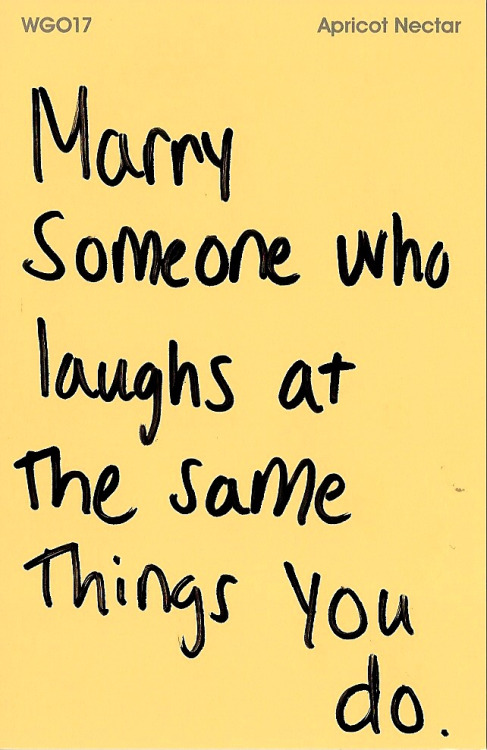 WGO17 Apricot Nectar
Marry
Someone who
laughs at
The same
Things You
do.